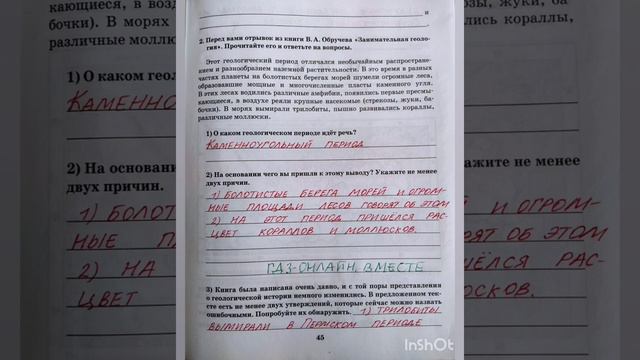 и
2. Перед вами отрывок из книги В. А. Обручева «Занимательная геоло-
гия». Прочитайте его и ответьте на вопросы.
Этот геологический период отличался необычайным распростране-
нием и разнообразием наземной растительности. В это время в разных
частях планеты на болотистых берегах морей шумели огромные леса,
образовавшие мощные и многочисленные пласты каменного угля.
В этих лесах водились различные амфибии, появились первые пресмы-
кающиеся, в воздухе реяли крупные насекомые (стрекозы, жуки, ба-
бочки). В морях вымирали трилобиты, пышно развивались кораллы,
различные моллюски.
1) О каком геологическом периоде идёт речь?
КАМЕННОУГОЛЬНЫЙ ПЕРИОД
2) На основании чего вы пришли к этому выводу? Укажите не менее
двух причин.
1) БОЛОТИСТЫЕ БЕРЕГА МОРЕЙ И ОГРОМ-
НЫЕ ПЛОЩАДИ ЛЕСОВ ГОВОРЯТ ОБ ЭТОМ
2) НА ЭТОТ ПЕРИОД ПРИШЁЛСЯ РАС-
ЦВЕТ КОРАЛЛОВ И МОЛЛЮСКОВ.
ГДЗ-ОНЛАЙН. ВМЕСТЕ
3) Книга была написана очень давно, и с той поры представления
о геологической истории немного изменились. В предложенном тек-
сте есть не менее двух утверждений, которые сейчас можно назвать
ошибочными. Попробуйте их обнаружить. 1) ТРИЛОБИТЫ
ВЫМИРАЛИ В ПЕРМСКОМ ПЕРИОДЕ
45
InShOt
кающиеся, в воз
бочки). В морях
различные моллю
1) О каком геоло
КАМЕННО
2) На основании
двух причин.
1) БОЛОТ
НЫЕ П
2) НА
ЦВЕТ
козы, жуки, ба-
ись кораллы,
кажите не менее
И ОГРОМ-
РЯТ ОБ ЭТОМ
ШЁЛСЯ РАС-
ЮСКОВ.